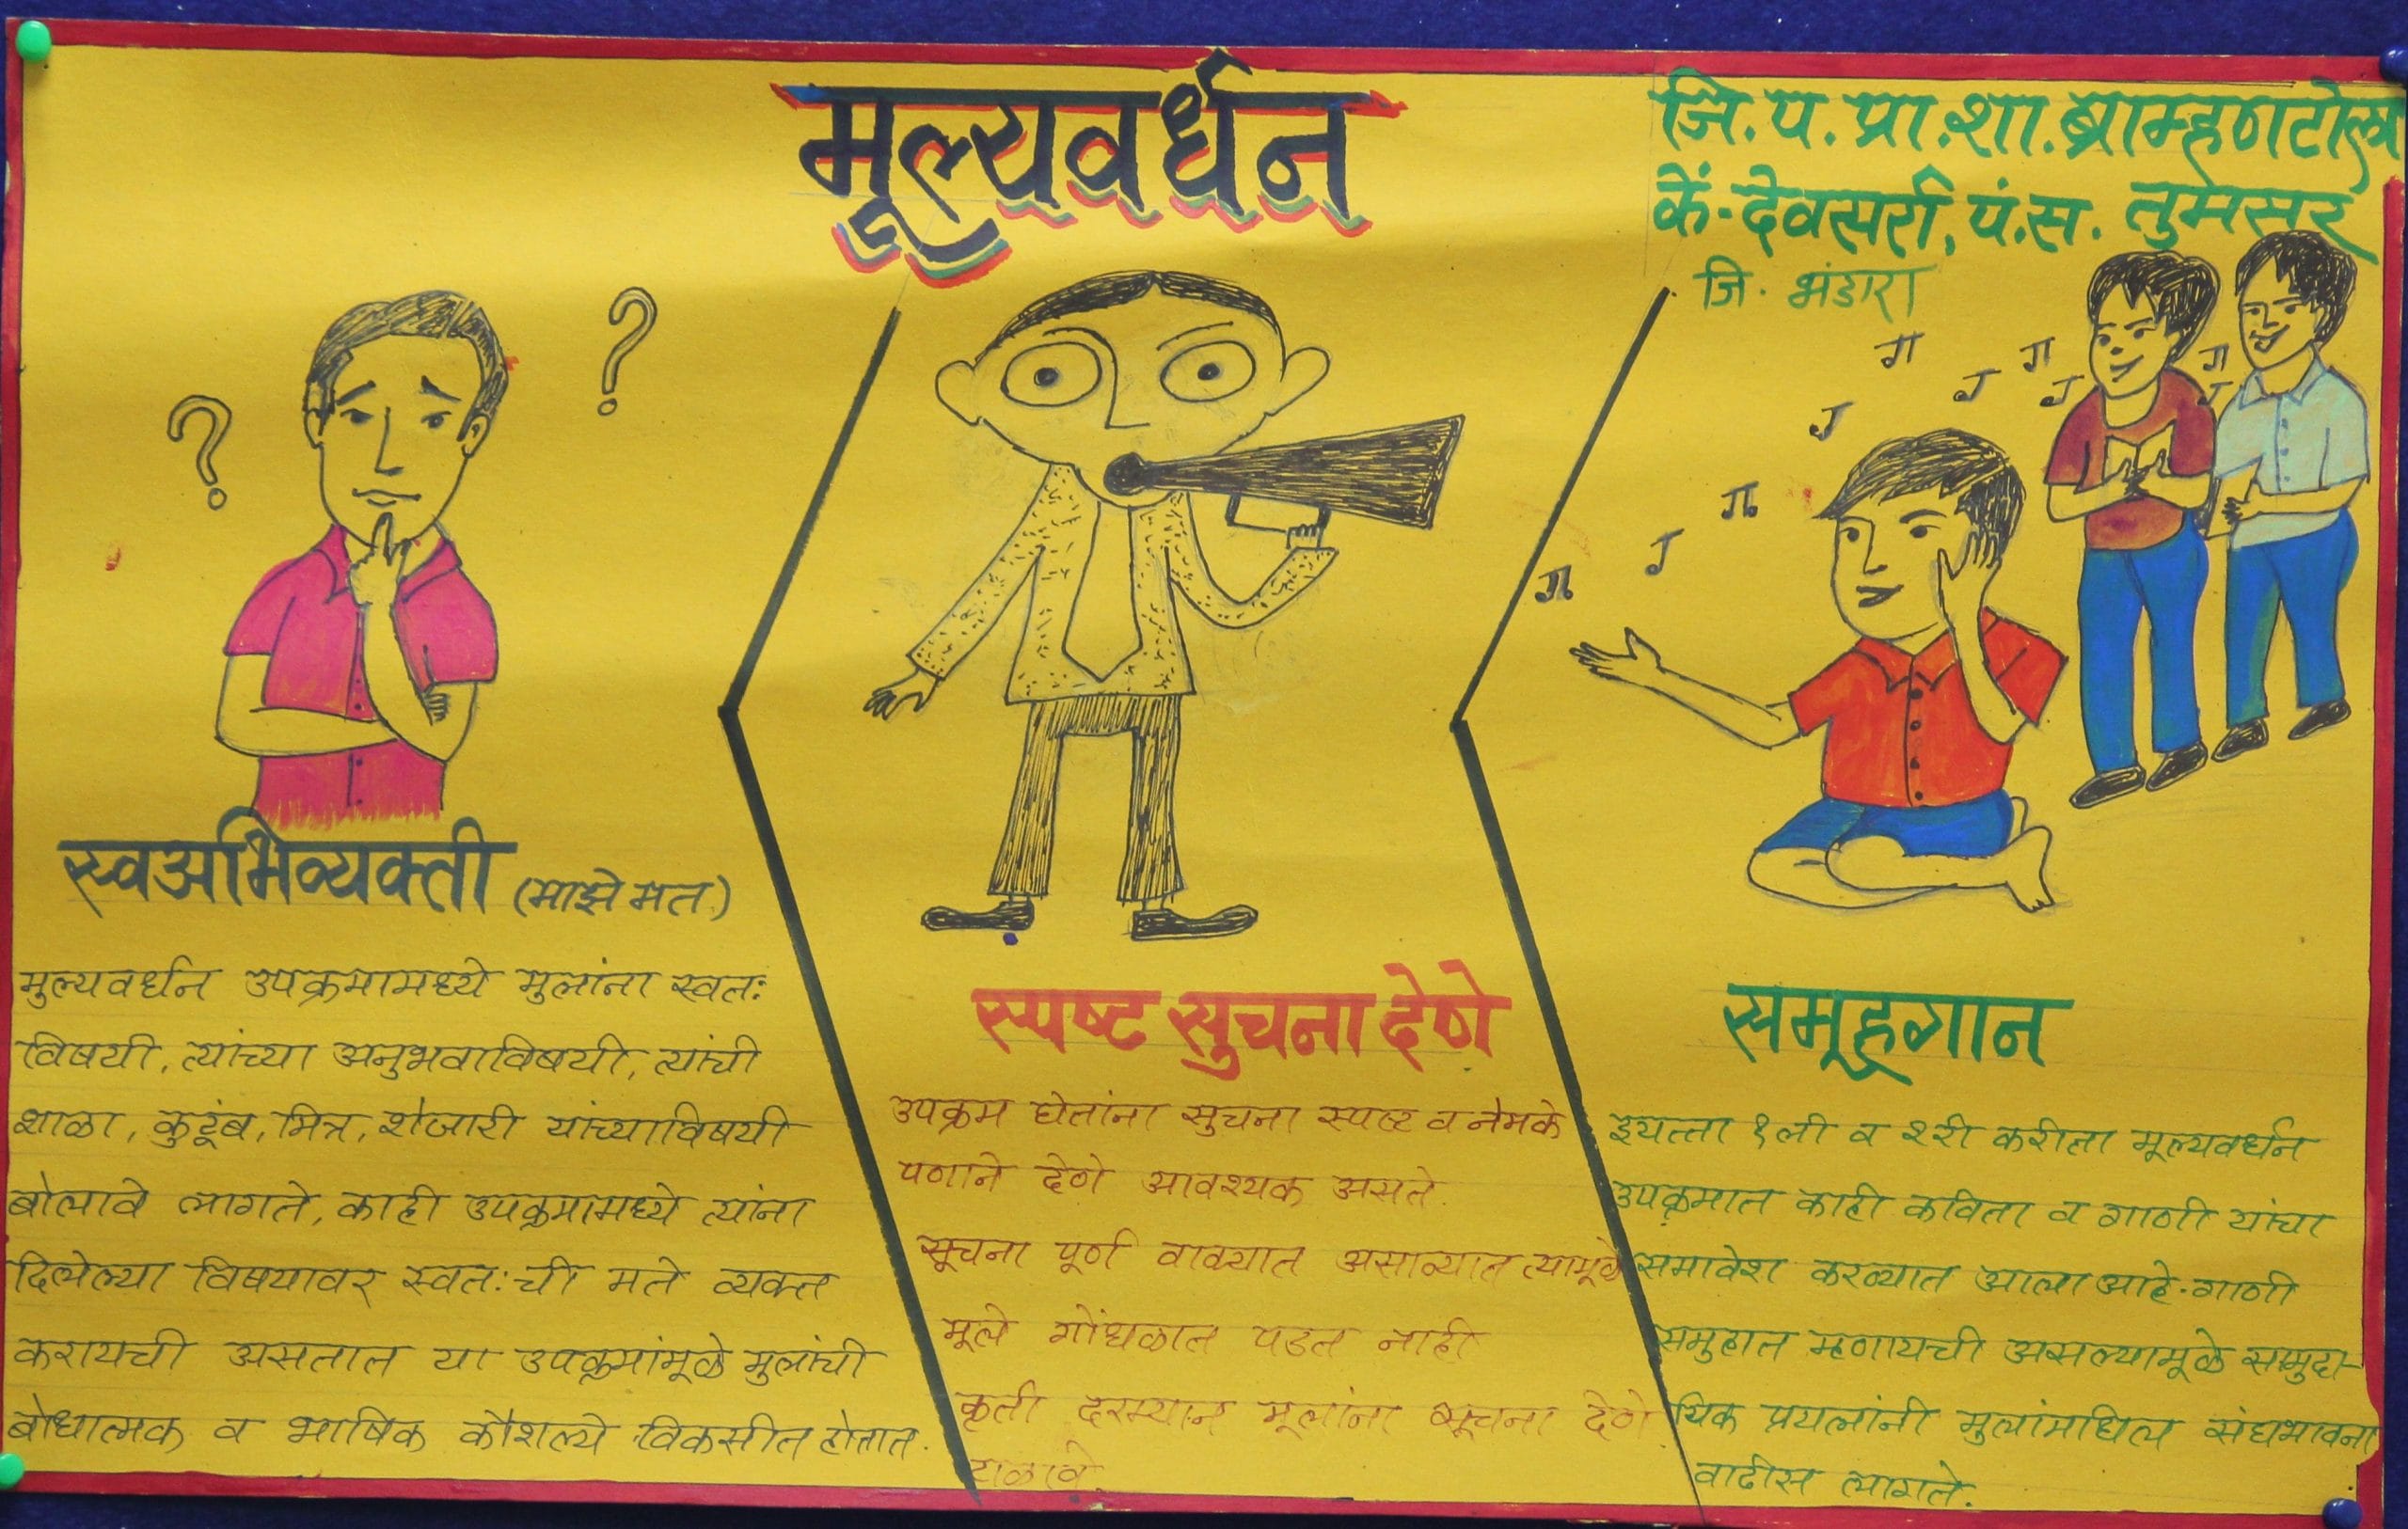 मूल्यवर्धन
जि.प.प्रा.शा.ब्राम्हणटोला
कें.देवसर्रा, पं.स. तुमसर
जि. भंडारा
स्वअभिव्यक्ती (माझे मत)
मुल्यवर्धन उपक्रमामध्ये मुलांना स्वतः
विषयी, त्यांच्या अनुभवाविषयी, त्यांची
शाळा, कुटूंब, मित्र, शेजारी यांच्याविषयी
बोलावे लागते, काही उपक्रमामध्ये त्यांना
दिलेल्या विषयावर स्वतःची मते व्यक्त
करायची असतात या उपक्रमांमूळे मुलांची
बोधात्मक व भाषिक कौशल्ये विकसीत होतात.
स्पष्ट सुचना देणे
उपक्रम घेतांना सुचना स्पष्ट व नेमके
पणाने देणे आवश्यक असते.
सूचना पूर्ण वाक्यात असाव्यात त्यामूळे
मूले गोंधळात पडत नाही
कृती दरम्यान मूलांना सूचना देणे
टाळावे.
समूहगान
इयत्ता १ली व २री करीता मूल्यवर्धन
उपक्रमात काही कविता व गाणी यांचा
समावेश करव्यात आला आहे. गाणी
समुहात म्हणायची असल्यामूळे समुदा-
यिक प्रयत्नांनी मुलांमाधिल संघभावना
वाढीस लागते.